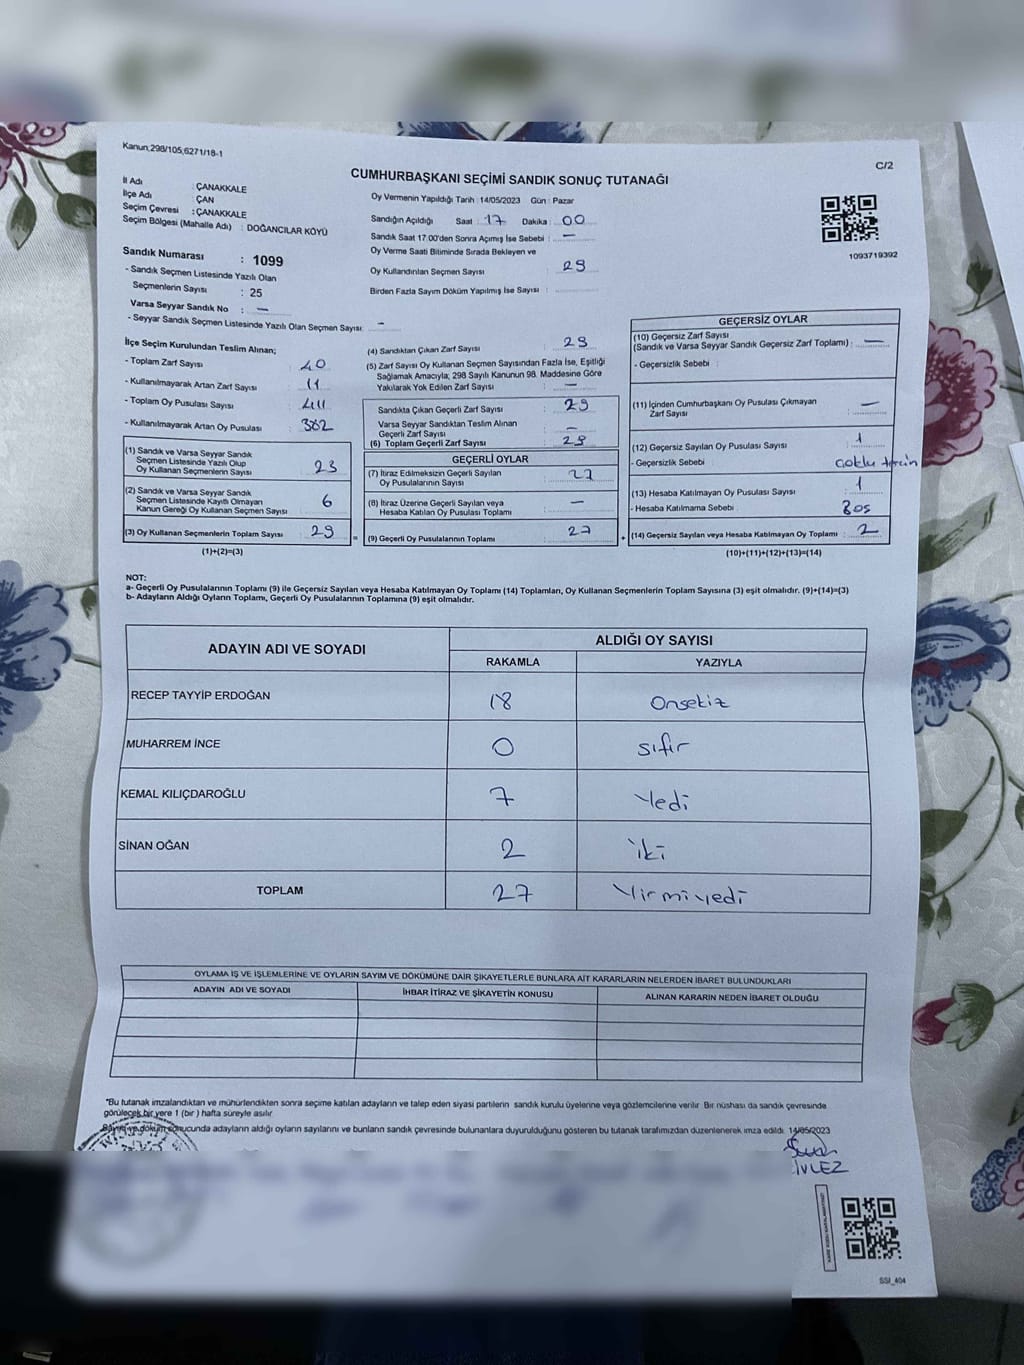 Kanun;298/105,6271/18-1
C/2
CUMHURBAŞKANI SEÇİMİ SANDIK SONUÇ TUTANAĞI
İl Adı : ÇANAKKALE
İlçe Adı : ÇAN
Seçim Çevresi : ÇANAKKALE
Seçim Bölgesi (Mahalle Adı) : DOĞANCILAR KÖYÜ
Sandık Numarası : 1099
- Sandık Seçmen Listesinde Yazılı Olan
Seçmenlerin Sayısı : 25
Varsa Seyyar Sandık No : —
- Seyyar Sandık Seçmen Listesinde Yazılı Olan Seçmen Sayısı: —
Oy Vermenin Yapıldığı Tarih : 14/05/2023 Gün : Pazar
Sandığın Açıldığı Saat : 17 Dakika : 00
Sandık Saat 17.00'den Sonra Açımış İse Sebebi : —
Oy Verme Saati Bitiminde Sırada Bekleyen ve
Oy Kullandırılan Seçmen Sayısı : 29
Birden Fazla Sayım Döküm Yapılmış İse Sayısı :
1093719392
İlçe Seçim Kurulundan Teslim Alınan;
- Toplam Zarf Sayısı : 40
- Kullanılmayarak Artan Zarf Sayısı : 11
- Toplam Oy Pusulası Sayısı : 411
- Kullanılmayarak Artan Oy Pusulası : 382
(1) Sandık ve Varsa Seyyar Sandık
Seçmen Listesinde Yazılı Olup
Oy Kullanan Seçmenlerin Sayısı : 23
(2) Sandık ve Varsa Seyyar Sandık
Seçmen Listesinde Kayıtlı Olmayan
Kanun Gereği Oy Kullanan Seçmen Sayısı : 6
(3) Oy Kullanan Seçmenlerin Toplam Sayısı : 29
(1)+(2)=(3)
(4) Sandıktan Çıkan Zarf Sayısı : 29
(5) Zarf Sayısı Oy Kullanan Seçmen Sayısından Fazla İse, Eşitliği
Sağlamak Amacıyla; 298 Sayılı Kanunun 98. Maddesine Göre
Yakılarak Yok Edilen Zarf Sayısı : —
Sandıkta Çıkan Geçerli Zarf Sayısı : 29
Varsa Seyyar Sandıktan Teslim Alınan
Geçerli Zarf Sayısı : —
(6) Toplam Geçerli Zarf Sayısı : 29
GEÇERLİ OYLAR
(7) İtiraz Edilmeksizin Geçerli Sayılan
Oy Pusulalarının Sayısı : 27
(8) İtiraz Üzerine Geçerli Sayılan veya
Hesaba Katılan Oy Pusulası Toplamı : —
= (9) Geçerli Oy Pusulalarının Toplamı : 27
GEÇERSİZ OYLAR
(10) Geçersiz Zarf Sayısı
(Sandık ve Varsa Seyyar Sandık Geçersiz Zarf Toplamı) : —
- Geçersizlik Sebebi :
(11) İçinden Cumhurbaşkanı Oy Pusulası Çıkmayan
Zarf Sayısı : —
(12) Geçersiz Sayılan Oy Pusulası Sayısı : 1
- Geçersizlik Sebebi : çoklu tercih
(13) Hesaba Katılmayan Oy Pusulası Sayısı : 1
- Hesaba Katılmama Sebebi : Bos
+ (14) Geçersiz Sayılan veya Hesaba Katılmayan Oy Toplamı : 2
(10)+(11)+(12)+(13)=(14)
NOT:
a- Geçerli Oy Pusulalarının Toplamı (9) ile Geçersiz Sayılan veya Hesaba Katılmayan Oy Toplamı (14) Toplamları, Oy Kullanan Seçmenlerin Toplam Sayısına (3) eşit olmalıdır. (9)+(14)=(3)
b- Adayların Aldığı Oyların Toplamı, Geçerli Oy Pusulalarının Toplamına (9) eşit olmalıdır.
ADAYIN ADI VE SOYADI
ALDIĞI OY SAYISI
RAKAMLA YAZIYLA
RECEP TAYYİP ERDOĞAN 18 Onsekiz
MUHARREM İNCE 0 sıfır
KEMAL KILIÇDAROĞLU 7 Yedi
SİNAN OĞAN 2 iki
TOPLAM 27 Yirmiyedi
OYLAMA İŞ VE İŞLEMLERİNE VE OYLARIN SAYIM VE DÖKÜMÜNE DAİR ŞİKAYETLERLE BUNLARA AİT KARARLARIN NELERDEN İBARET BULUNDUKLARI
ADAYIN ADI VE SOYADI İHBAR İTİRAZ VE ŞİKAYETİN KONUSU ALINAN KARARIN NEDEN İBARET OLDUĞU
"Bu tutanak imzalandıktan ve mühürlendikten sonra seçime katılan adayların ve talep eden siyasi partilerin sandık kurulu üyelerine veya gözlemcilerine verilir. Bir nüshası da sandık çevresinde
görülecek bir yere 1 (bir) hafta süreyle asılır.
Sayım ve döküm sonucunda adayların aldığı oyların sayılarını ve bunların sandık çevresinde bulunanlara duyurulduğunu gösteren bu tutanak tarafımızdan düzenlenerek imza edildi. 14/05/2023
SSI_404